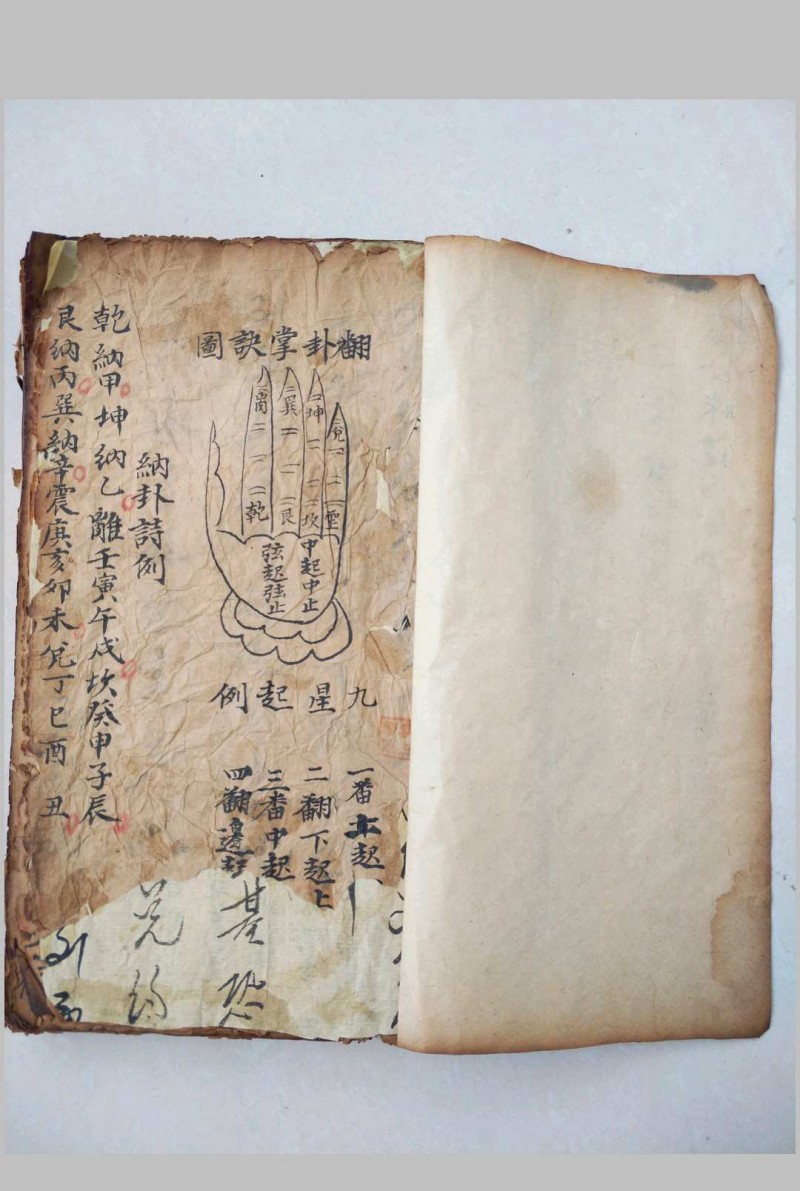 翻卦掌訣圖
離
巽
坤
兌
乾
艮
坎
中起中止
弦起弦止
九星起例
一番上起
二翻下起上
三番中起
四翻邊起
納卦詩例
乾納甲坤納乙離壬寅午戌坎癸申子辰
艮納丙巽納辛震庚亥卯未兌丁巳酉丑
基恐